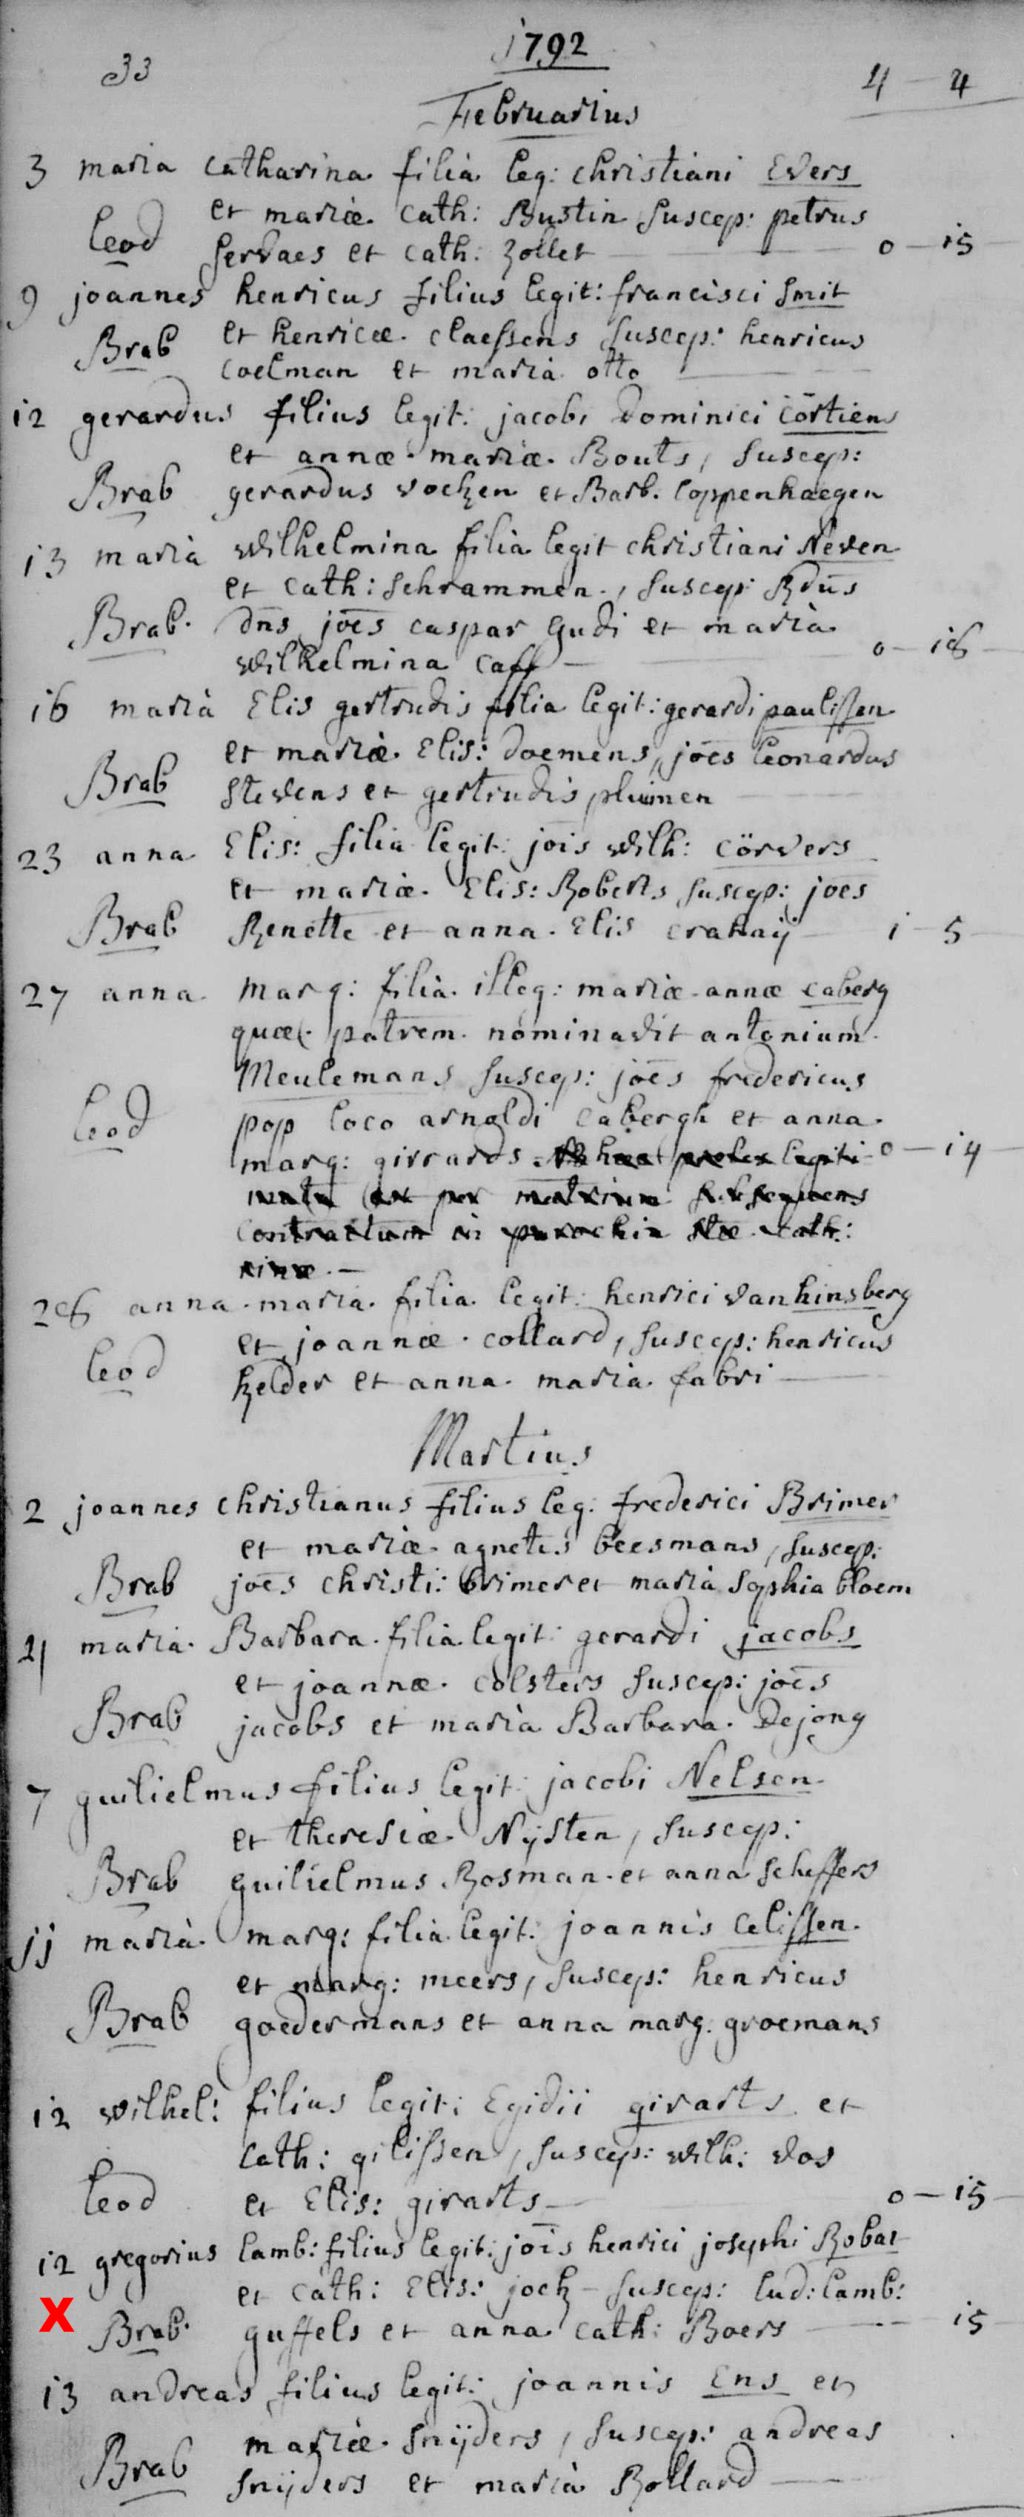 1792
33
4 — 4
Februarius
3 maria catharina filia leg: christiani Evers
et mariæ cath: Bustin suscep: petrus
leod servaes et cath: zollet — 0 — 15
9 joannes henricus filius legit: francisci Smit
et henricæ claessens suscep: henricus
Brab coelman et maria otto
12 gerardus filius legit: jacobi Dominici cörtiens
et annæ mariæ Bouts, suscep:
Brab gerardus vochen et Barb. Coppenhaegen
13 maria wilhelmina filia legit christiani Neven
et cath: schrammen, suscep: Rdūs
Brab. dn̄s joēs caspar Gudi et maria
wilhelmina caff — 0 — 18
16 maria Elis gertrudis filia legit: gerardi paulissen
et mariæ Elis: doemens, joēs leonardus
Brab stevens et gertrudis pluimen
23 anna Elis: filia legit: joīs wilh: cörvers
et mariæ Elis: Roberts suscep: joes
Brab Renette et anna Elis crahaÿ 1 — 5
27 anna marg: filia illeg: mariæ annæ caberg
quæ patrem nominavit antonium
Meulemans suscep: joēs fredericus
leod pop loco arnoldi cabergh et anna
marg: girrards hæc proles legiti 0 — 14
mata est per matrim: subsequens
contractum in parochia stæ cath:
rinæ —
28 anna maria filia legit: henrici vanhinsberg
et joannæ collard, suscep: henricus
leod helder et anna maria fabri
Martius
2 joannes christianus filius leg: frederici Brimer
et mariæ agnetis beesmans, suscep:
Brab joēs christi: brimer et maria sophia bloem
4 maria Barbara filia legit: gerardi jacobs
et joannæ colsters suscep: joēs
Brab jacobs et maria Barbara Dejong
7 guilielmus filius legit: jacobi Nelsen
et theresiæ Nijsten, suscep:
Brab guilielmus Rosman et anna scheffers
11 maria marg: filia legit: joannis celissen
et marg: meers, suscep: henricus
Brab goedermans et anna marg: groemans
12 wilhel: filius legit: Egidii girarts et
cath: gilissen, suscep: wilh: vos
leod et Elis: girarts — 0 — 15
12 gregorius lamb: filius legit: joīs henrici josephi Robat
et cath: Elis: joch suscep: lud: lamb:
X Brab. guffels et anna cath: Boers — 15
13 andreas filius legit: joannis Ens et
mariæ snijders, suscep: andreas
Brab snijders et maria Rollard